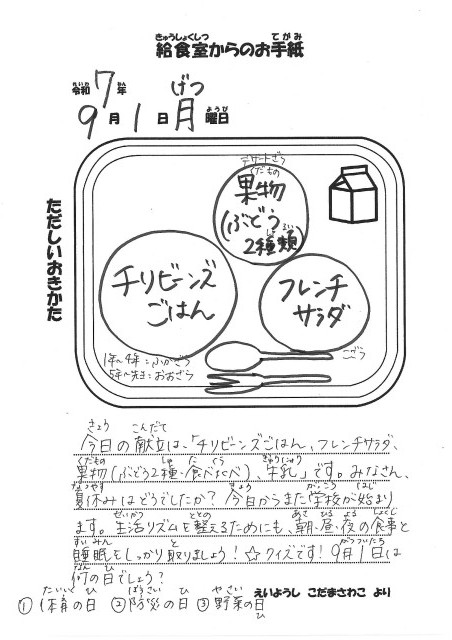 きゅうしょくしつ てがみ
給食室からのお手紙
れいわ ねん げつ
令和7年
ようび
9月1日月曜日
ただしいおきかた
デザートざら
くだもの
果物
(ぶどう
しゅるい
2種類)
チリビーンズ
ごはん
フレンチ
サラダ
1年~4年:ふかざら
5年~先生:おおざら
こざら
きょう こんだて
今日の献立は、「チリビーンズごはん、フレンチサラダ、
くだもの しゅ た くら ぎゅうにゅう
果物(ぶどう2種・食べくらべ)、牛乳」です。みなさん、
なつやす きょう がっこう はじ
夏休みはどうでしたか?今日からまた学校が始まり
せいかつ ととの あさ ひる よる しょくじ
ます。生活リズムを整えるためにも、朝・昼・夜の食事と
すいみん と がつついたち
睡眠をしっかり取りましょう!☆クイズです!9月1日は
なん ひ
何の日でしょう?
たいいく ひ ぼうさい ひ やさい ひ
①体育の日 ②防災の日 ③野菜の日
えいようし こだまさわこ より